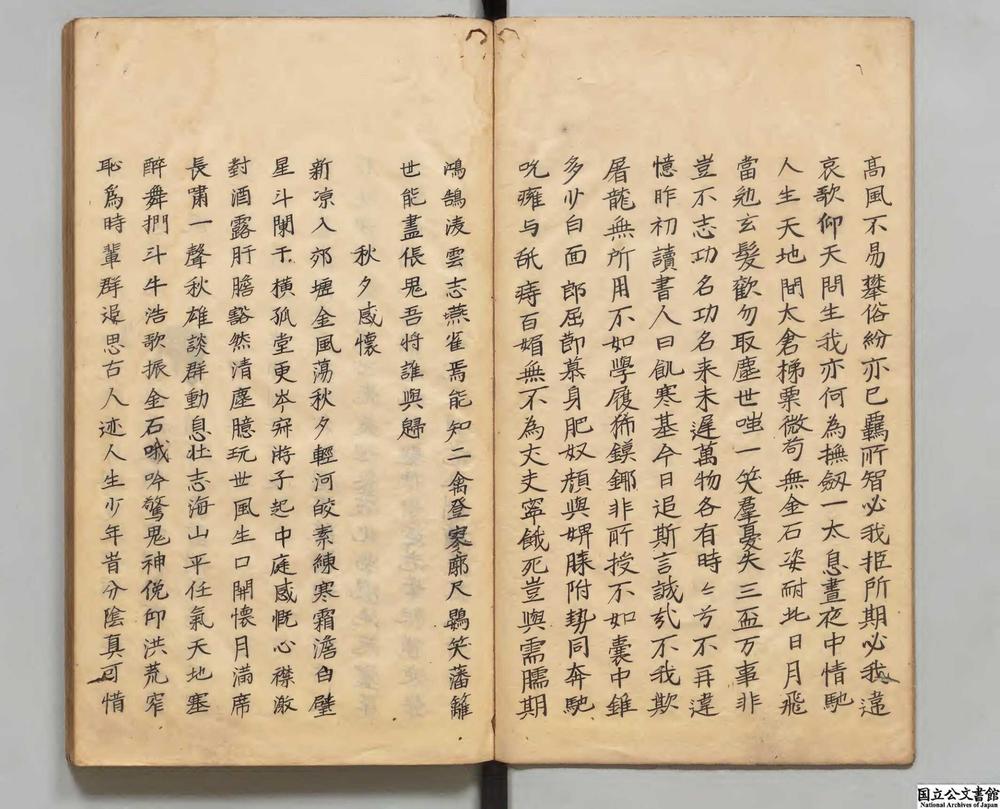 高風不易攀俗紛亦已羈所智必我拒所期必我違
哀歌仰天問生我亦何為撫劔一太息晝夜中情馳
人生天地間大倉梯粟微苟無金石姿耐此日月飛
當勉玄髮歡勿取塵世嗤一笑羣憂失三盃万事非
豈不志功名功名来未遅萬物各有時々兮不再違
憶昨初讀書人曰飢寒基今日追斯言誠哉不我欺
屠龍無所用不如學履狶鏌鎁非所授不如囊中錐
多少白面郎屈節慕身肥奴顔與婢膝附勢同奔馳
吮癰与舐痔百媚無不為丈夫寧餓死豈與需臑期
鴻鵠凌雲志燕雀焉能知二禽登寥廓尺鷃笑藩籬
世能盡倀鬼吾將誰與歸
秋夕感懷
新凉入郊墟金風蕩秋夕輕河皎素練寒霜澹白璧
星斗闌干橫孤堂更岑寂蔣子起中庭感慨心襟激
對酒露肝膽豁然清塵臆玩世風生口開懷月滿席
長嘯一聲秋雄談群動息壮志海山平任氣天地塞
醉舞捫斗牛浩歌振金石哦吟驚鬼神俛仰洪荒窄
恥為時輩群逡思古人迹人生少年昔分陰真可惜
国立公文書館
National Archives of Japan